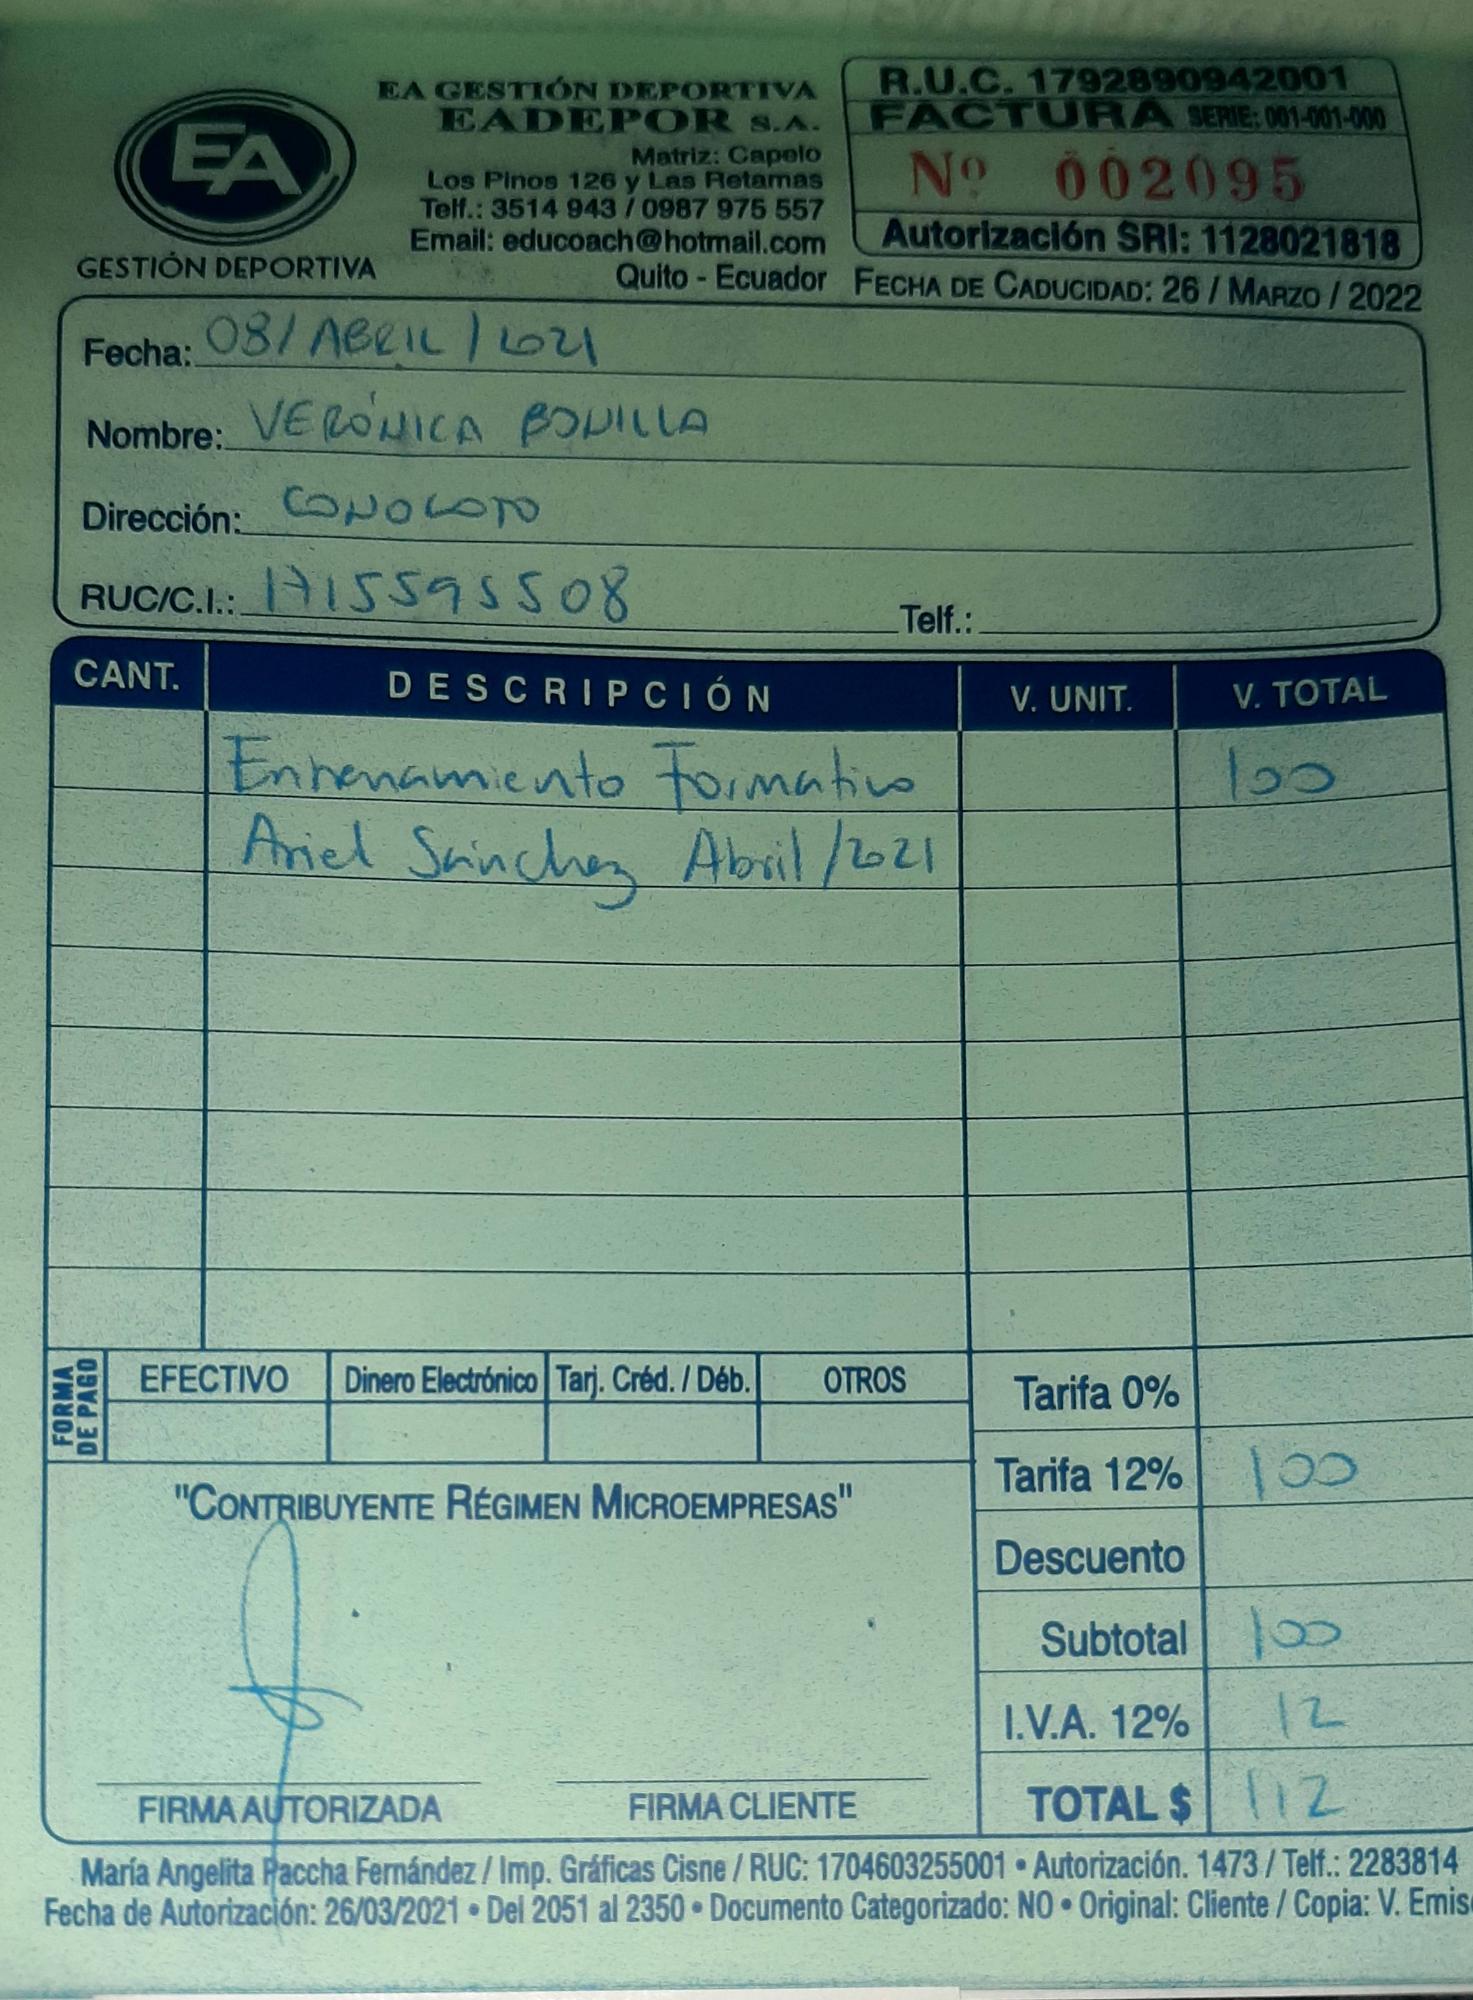 EA
GESTIÓN DEPORTIVA
EA GESTIÓN DEPORTIVA
EADEPOR S.A.
Matriz: Capelo
Los Pinos 126 y Las Retamas
Telf.: 3514 943 / 0987 975 557
Email: educoach@hotmail.com
Quito - Ecuador
R.U.C. 1792890942001
FACTURA SERIE: 001-001-000
Nº 002095
Autorización SRI: 1128021818
FECHA DE CADUCIDAD: 26 / MARZO / 2022
Fecha: 08/ABRIL/2021
Nombre: VERÓNICA BONILLA
Dirección: CONOCOTO
RUC/C.I.: 1715595508 Telf.:
CANT. DESCRIPCIÓN V. UNIT. V. TOTAL
Entrenamiento Formativo 100
Ariel Sánchez Abril/2021
FORMA DE PAGO
EFECTIVO Dinero Electrónico Tarj. Créd. / Déb. OTROS
Tarifa 0%
Tarifa 12% 100
Descuento
Subtotal 100
I.V.A. 12% 12
TOTAL $ 112
"CONTRIBUYENTE RÉGIMEN MICROEMPRESAS"
FIRMA AUTORIZADA FIRMA CLIENTE
María Angelita Paccha Fernández / Imp. Gráficas Cisne / RUC: 1704603255001 • Autorización. 1473 / Telf.: 2283814
Fecha de Autorización: 26/03/2021 • Del 2051 al 2350 • Documento Categorizado: NO • Original: Cliente / Copia: V. Emis